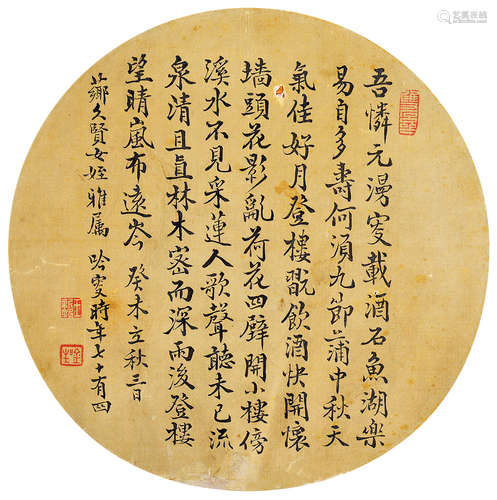 吾憐元漫叟載酒石魚湖樂
易自多壽何須九節蒲中秋天
氣佳好月登樓翫飲酒快開懷
墻頭花影亂荷花四壁開小樓傍
溪水不見采蓮人歌聲聽未已流
泉清且直林木密而深雨後登樓
望晴嵐布遠岑 癸未立秋三日
薌久賢女姪雅属 吟叟時年七十有四